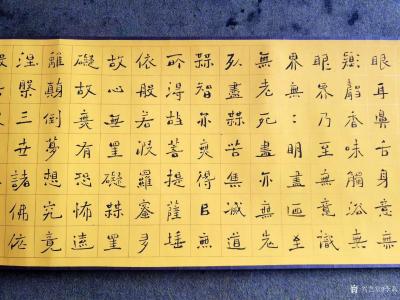 眼耳鼻舌身意無
色聲香味觸法無
眼界乃至無意識
界無明盡乃至
無老死盡亦無老
死盡無苦集滅道
無智亦無得以無
所得故菩提薩埵
依般若波羅蜜多
故心無罣礙無罣
礙故無有恐怖遠
離顛倒夢想究竟
涅槃三世諸佛依